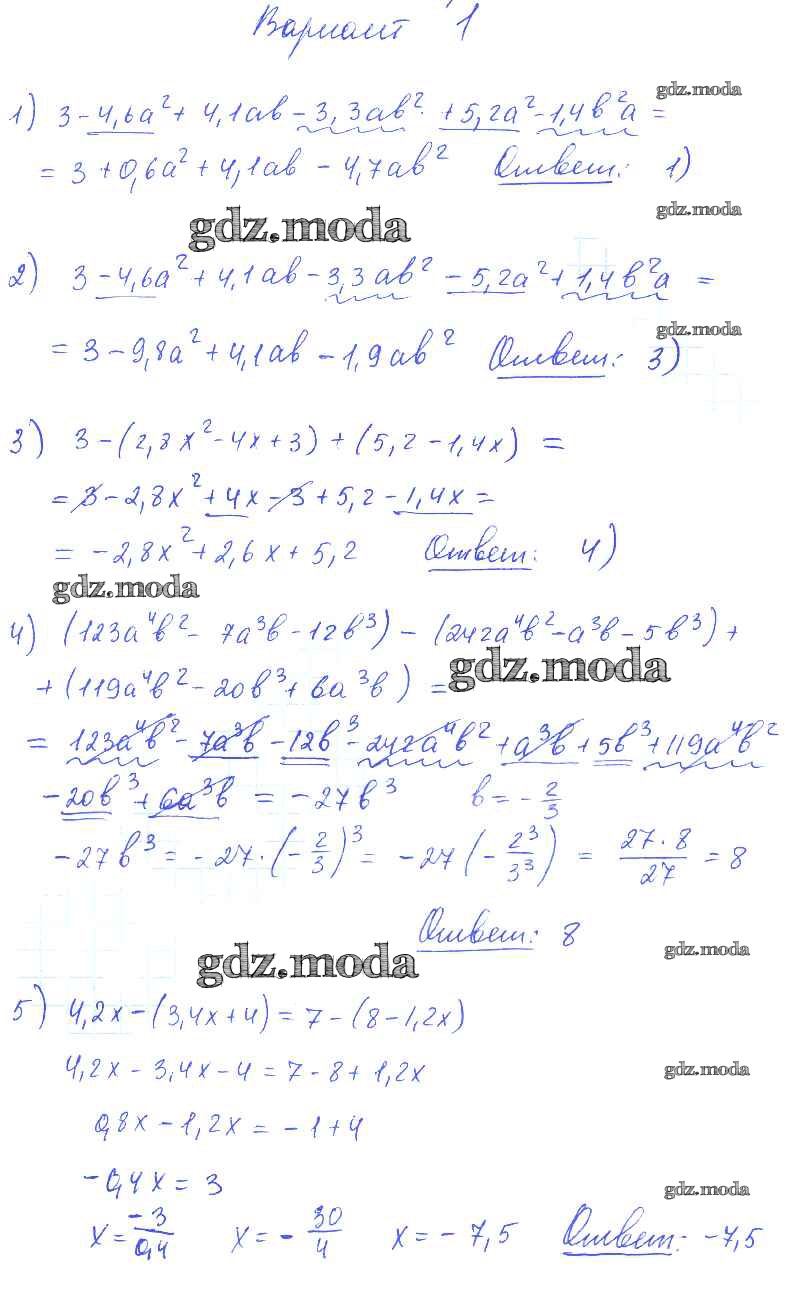 Вариант 1
gdz.moda
1) 3 - 4,6a² + 4,1ab - 3,3ab² + 5,2a² - 1,4b²a =
= 3 + 0,6a² + 4,1ab - 4,7ab² Ответ: 1)
gdz.moda
gdz.moda
2) 3 - 4,6a² + 4,1ab - 3,3ab² - 5,2a² + 1,4b²a =
gdz.moda
= 3 - 9,8a² + 4,1ab - 1,9ab² Ответ: 3)
3) 3 - (2,8x² - 4x + 3) + (5,2 - 1,4x) =
= 3 - 2,8x² + 4x - 3 + 5,2 - 1,4x =
= -2,8x² + 2,6x + 5,2 Ответ: 4)
gdz.moda
4) (123a⁴b² - 7a³b - 12b³) - (242a⁴b² - a³b - 5b³) +
+ (119a⁴b² - 20b³ + 6a³b) =
gdz.moda
= 123a⁴b² - 7a³b - 12b³ - 242a⁴b² + a³b + 5b³ + 119a⁴b²
- 20b³ + 6a³b = -27b³ b = -2/3
-27b³ = -27 · (-2/3)³ = -27 (-2³/3³) = 27·8/27 = 8
Ответ: 8
gdz.moda
gdz.moda
5) 4,2x - (3,4x + 4) = 7 - (8 - 1,2x)
4,2x - 3,4x - 4 = 7 - 8 + 1,2x
gdz.moda
0,8x - 1,2x = -1 + 4
-0,4x = 3
gdz.moda
x = -3/0,4 x = -30/4 x = -7,5 Ответ: -7,5